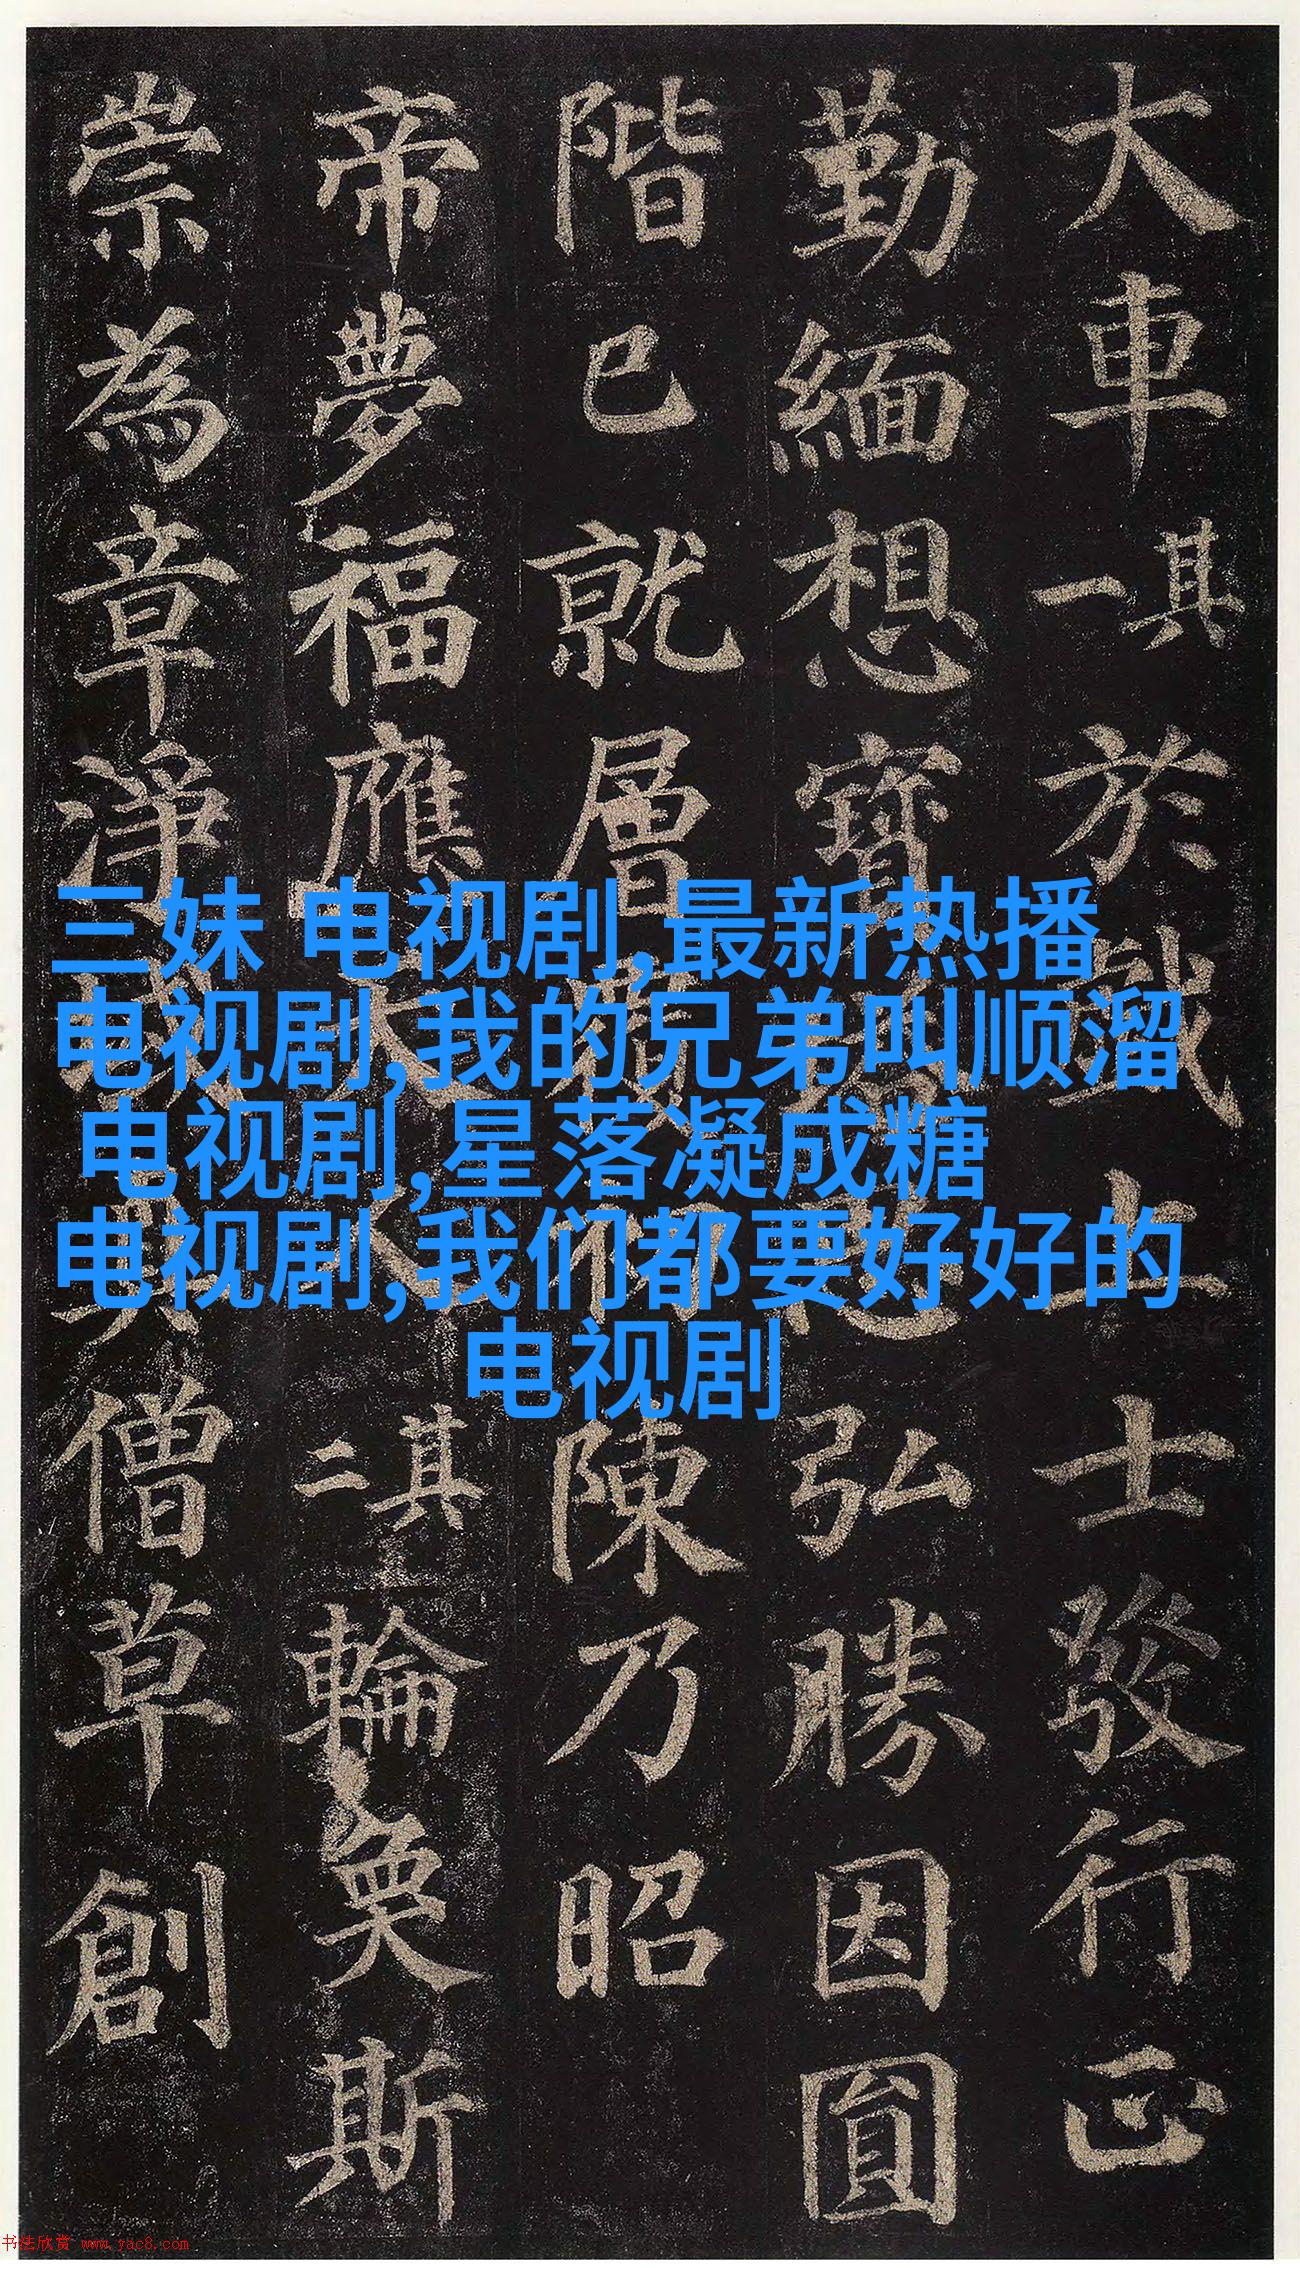 大車其一於戲上士發行正
勤緬想寶弘勝因圓
階已就層陳乃昭
帝夢福應其二輪奐斯
崇為章淨僧草創
三妹 电视剧,最新热播
电视剧,我的兄弟叫顺溜
电视剧,星落凝成糖
电视剧,我们都要好好的
电视剧
书法欣赏 www.yac8.com